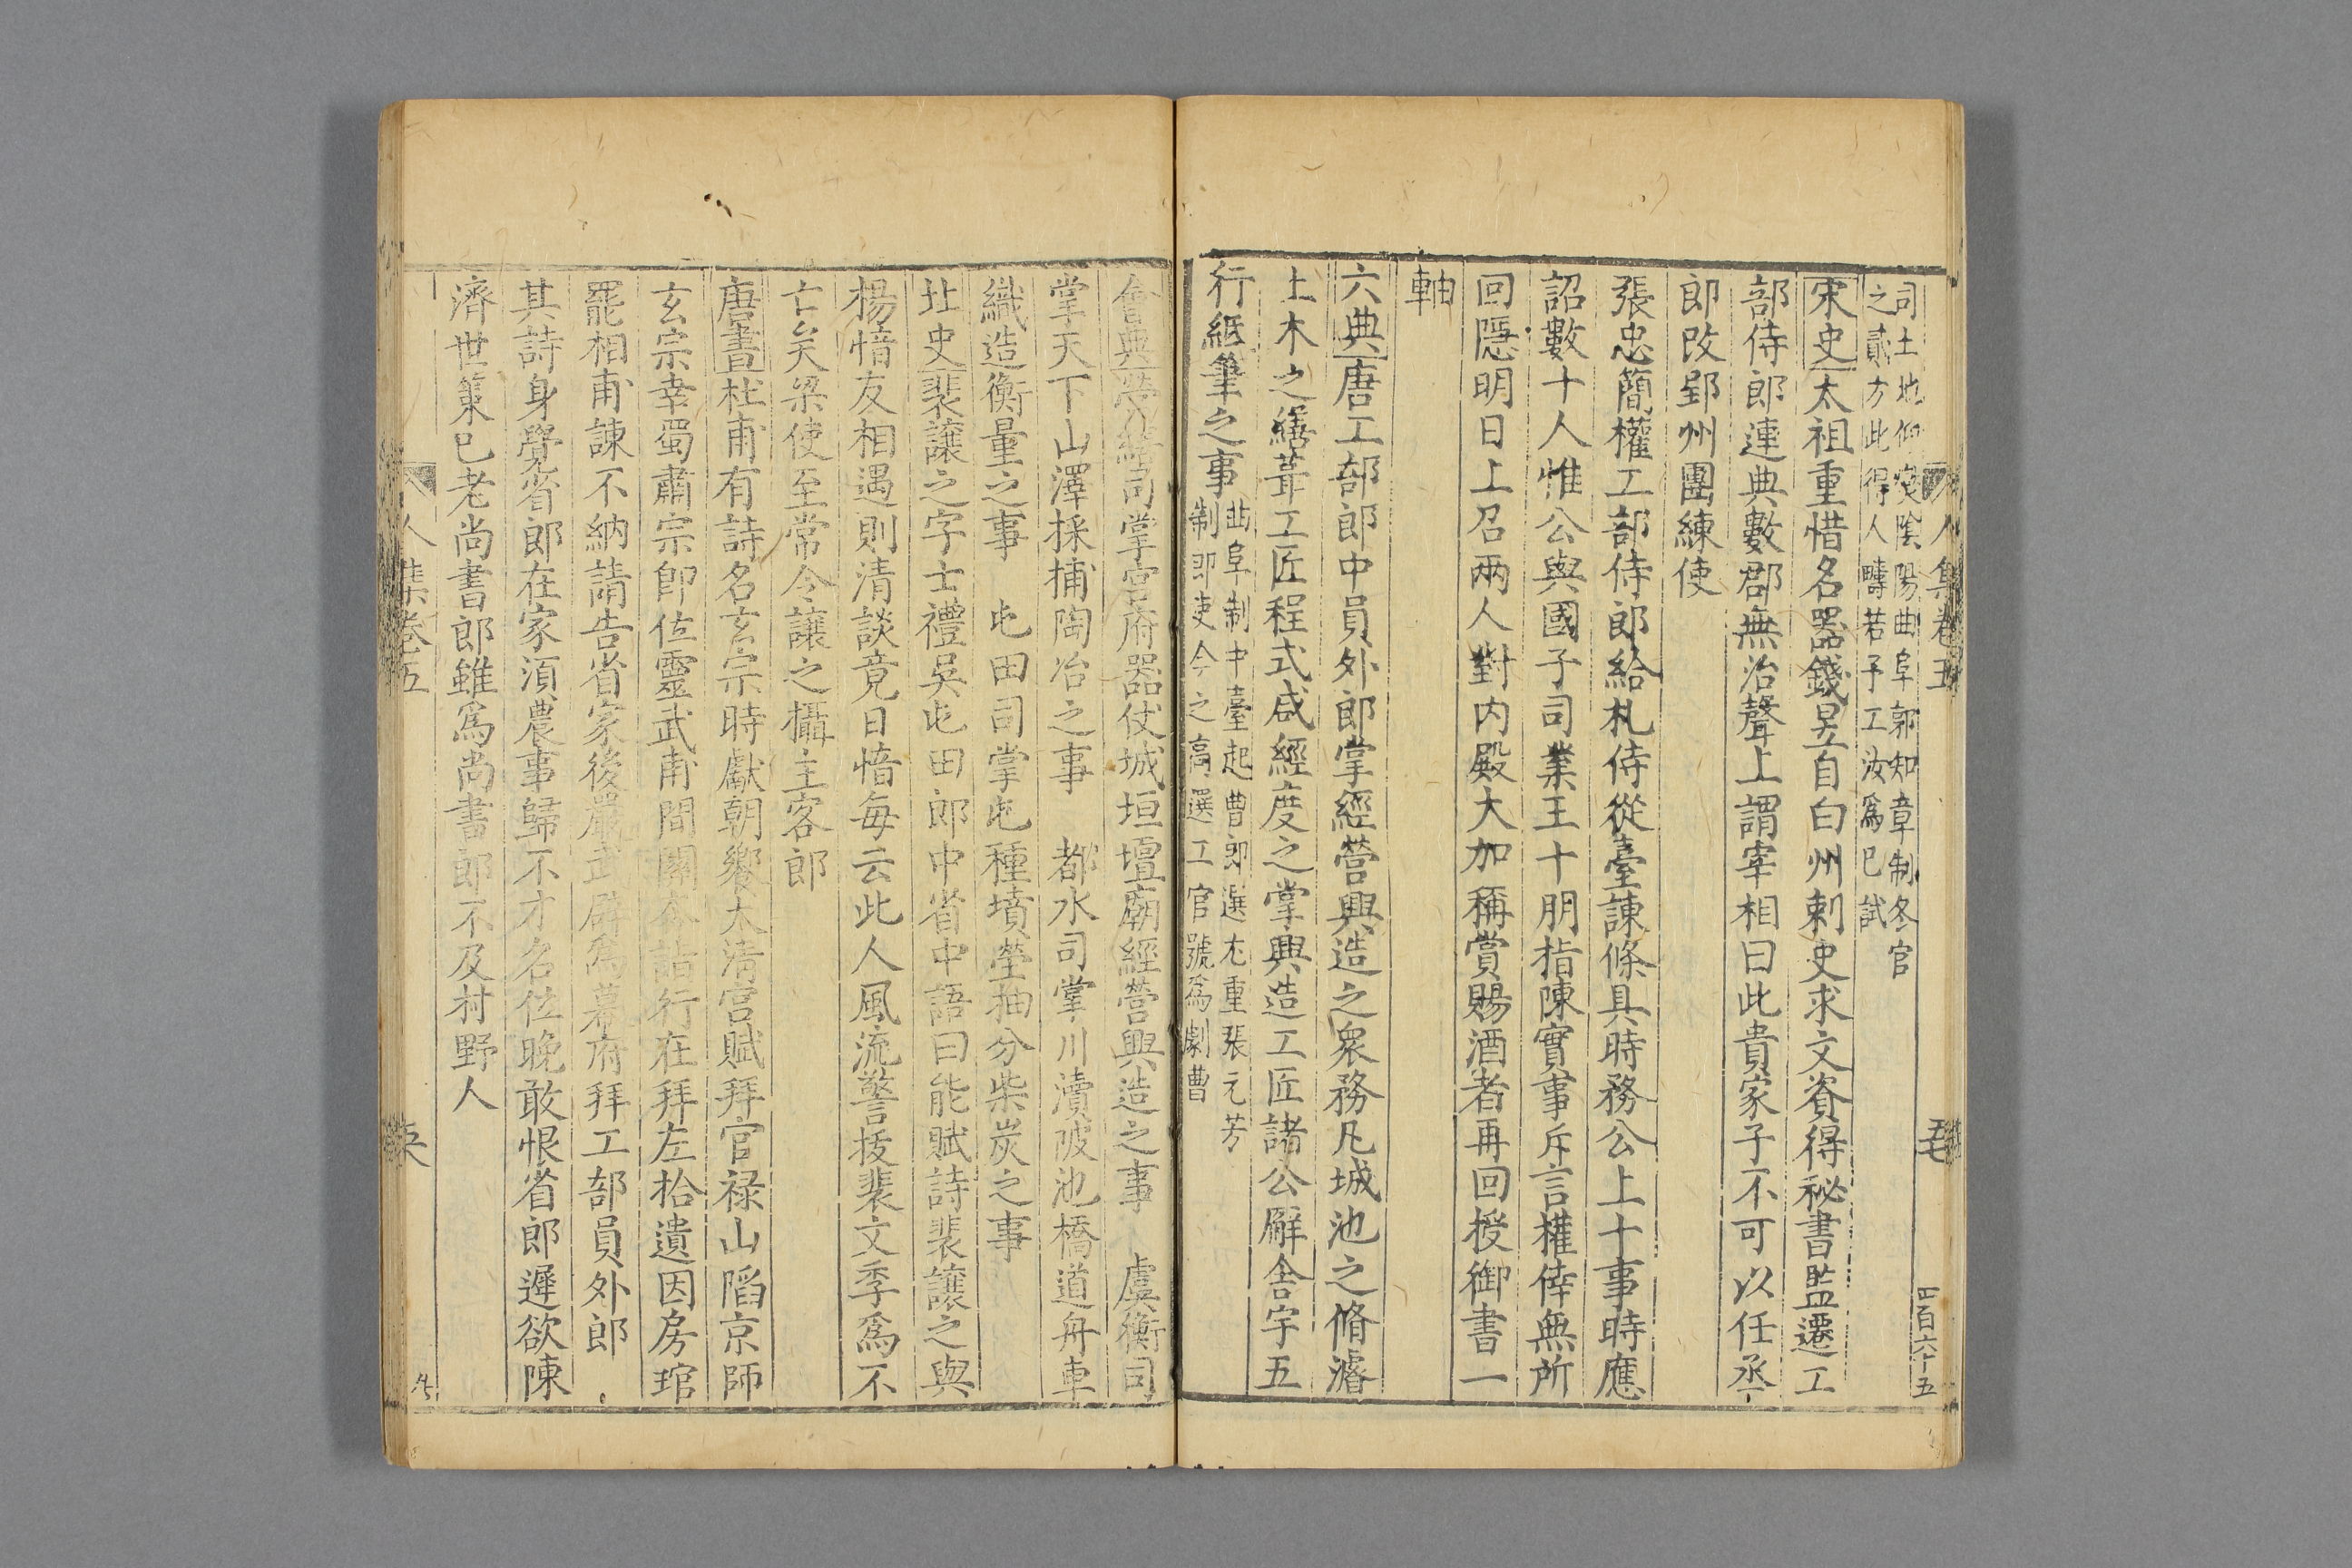 人集卷五
四百六十五
司土地仰安陰陽曲阜郭知章制冬官
之貳方此得人疇若予工汝爲已試
宋史太祖重惜名器錢昱自白州刺史求文資得祕書監遷工
部侍郎連典數郡無治聲上謂宰相曰此貴家子不可以任丞
郎改郢州團練使
張忠簡權工部侍郎給札侍從臺諫條具時務公上十事時應
詔數十人惟公與國子司業王十朋指陳實事斥言權倖無所
回隱明日上召兩人對內殿大加稱賞賜酒者再回授御書一
軸
六典唐工部郎中員外郎掌經營興造之衆務凡城池之脩濬
土木之繕葺工匠程式咸經度之掌興造工匠諸公廨舍宇五
行紙筆之事
曲阜制中臺起曹郎選尤重張元芳
制即吏今之高選工官號爲劇曹
會典營繕司掌宮府器仗城垣壇廟經營興造之事 虞衡司
掌天下山澤採捕陶冶之事 都水司掌川瀆陂池橋道舟車
織造衡量之事 屯田司掌屯種墳塋抽分柴炭之事
北史裴讓之字士禮吳屯田郎中省中語曰能賦詩裴讓之與
楊愔友相遇則清談竟日愔每云此人風流警拔裴文季爲不
亡矣梁使至常令讓之攝主客郎
唐書杜甫有詩名玄宗時獻朝饗太清宮賦拜官祿山陷京師
玄宗幸蜀肅宗卽位靈武甫間關奔詣行在拜左拾遺因房琯
罷相甫諫不納請告省家後嚴武辟爲幕府拜工部員外郎
其詩身覺省郎在家須農事歸不才名位晚敢恨省郎遲欲陳
濟世策已老尚書郎雖爲尚書郎不及村野人
人集卷五